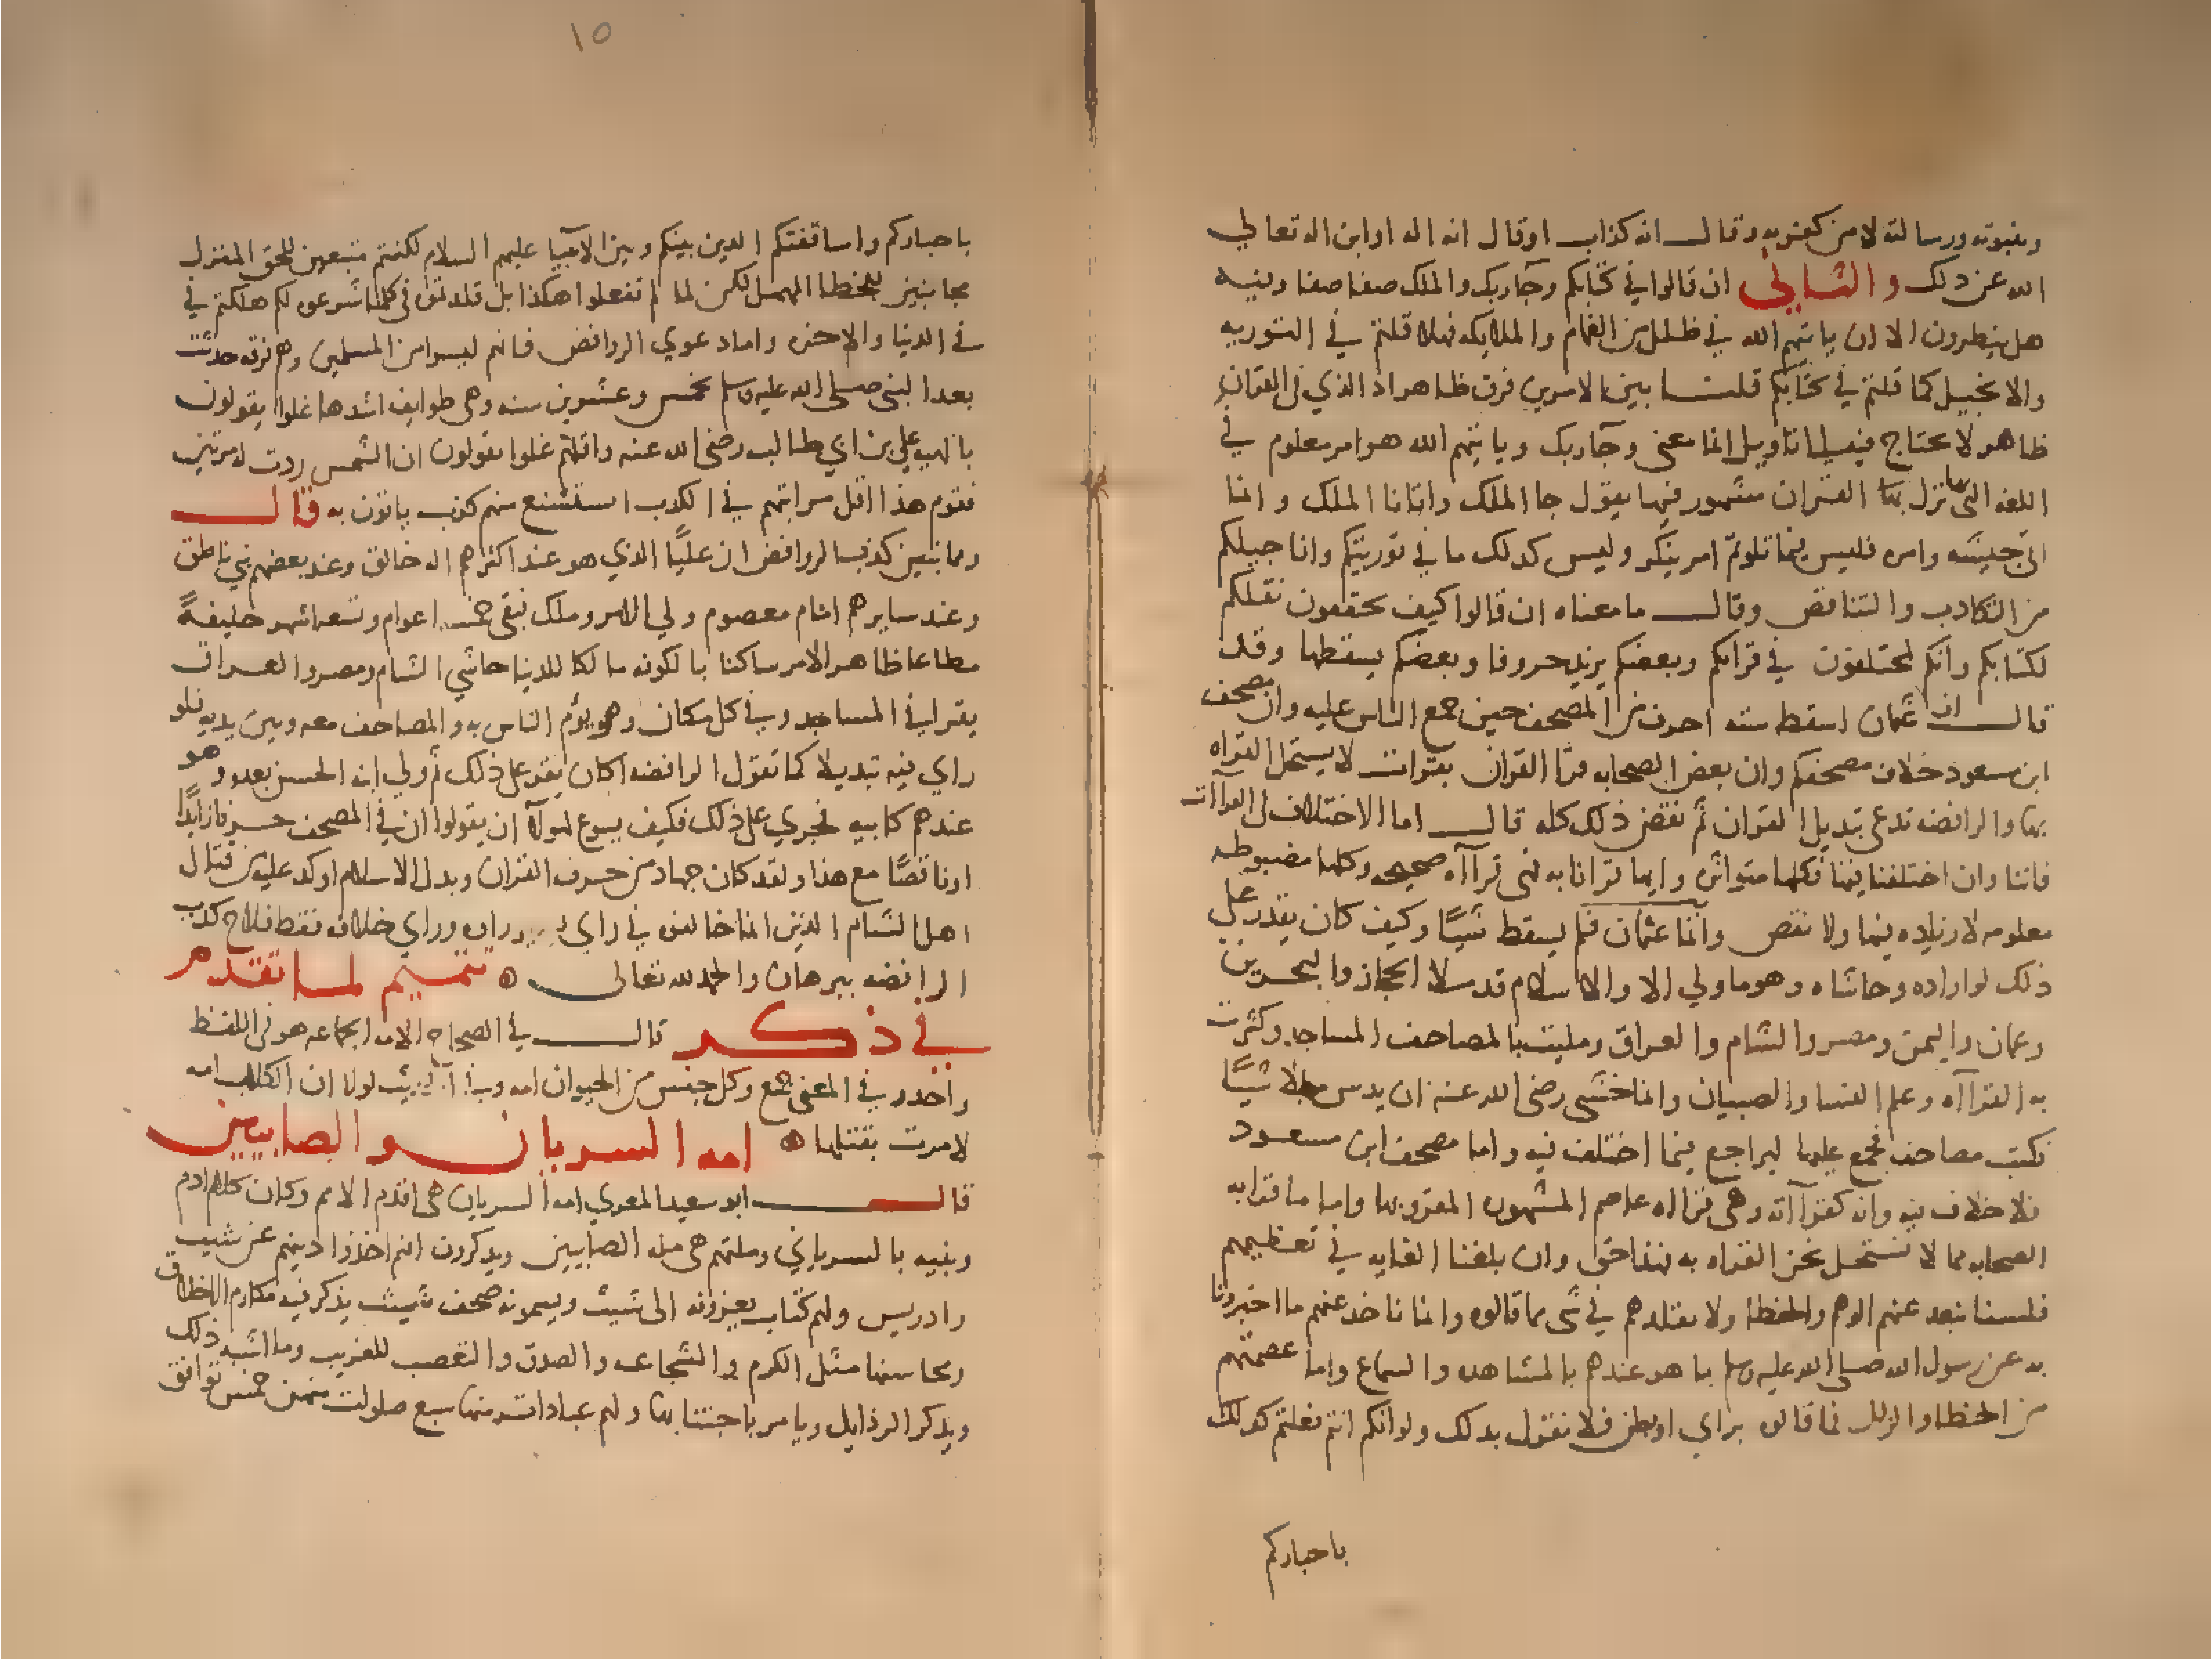 وبنبوته ورسالته لا من كفر به وقال انه كذاب اوقال انه اله او ابن اله تعالى
الله عن ذلك والثاني ان قالوا في كتابكم وجآ ربك والملك صفا صفا وفيه
هل ينظرون الا ان ياتيهم الله في ظلل من الغمام والملايكه فهلا قلتم في التوريه
والانجيل كما قلتم في كتابكم قلنا بين الامرين فرق ظاهر اذ الذي في القران
ظاهر لا يحتاج فيه الى تاويل انما معنى وجآ ربك وياتيهم الله هو امر معلوم في
اللغه التي بها نزل بها القران مشهور فيها يقول جا الملك واتانا الملك وانما
اتى جيشه وامره فليس فيما تلوتم امر ينكر وليس كذلك ما في توريتكم واناجيلكم
من التكادب والتناقض وقال ما معناه ان قالوا كيف تحققون نقلكم
لكتابكم وانكم لمختلفون في قراتكم وبعضكم يزيد حروفا وبعضكم يسقطها وقد
قال ان عثمان اسقط سته احرف من المصحف حين جمع الناس عليه وان مصحف
ابن مسعود خلاف مصحفكم وان بعض الصحابه قرا القران بقرات لا يستحل القراه
بها والرافضه تدعى تبديل القران ثم نقض ذلك كله قال اما الاختلاف في القراآت
فاننا وان اختلفنا فيها فكلها متواتره وايها قرانا به فهى قراآه صحيحه وكلها مضبوطه
معلومه لا زياده فيها ولا نقص وأنما عثمان فلم يسقط شيئا وكيف كان يقدر على
ذلك لو اراده وحاشاه وهو ما ولي الا والاسلام قد ملا الحجاز والبحرين
وعمان واليمن ومصر والشام والعراق ومليت بالمصاحف المساجد وكثرت
به القراآه وعلم النسا والصبيان وانما خشى رضى الله عنه ان يدس شيئا
فكتب مصاحف فجمع عليها ليراجع فيما اختلف فيه واما مصحف ابن مسعود
فلا خلاف فيه وانه كقراآته وهى قرااه عاصم المشهوره المقرو بها واما ما قرا به
الصحابه مما لا نستحل نحن القراه به فهذا حق وان بلغنا الغايه في تعظيمهم
فلسنا نبعد عنهم الوهم والخطا ولا نقلدهم في شى مما قالوه وانما ناخذ عنهم ما اخبرونا
به عن رسول الله صلى الله عليه وسلم بما هو عندهم بالمشاهده والسماع واما عصمتهم
من الخطا والزلل فما قالوه براي او بظن فلا نقول بذلك ولو انكم انتم فعلتم كذلك
باحباركم
١٥
باحباركم واساقفتكم الدين بينكم وبين الانبيا عليهم السلام لكنتم متبعين للحق المنزل
مجانبين للخطا المهمل لكن لما لم تفعلوا هكذا بل قلدتموهم في كلما شرعوه لكم هلكتم في
في الدنيا والاخره واما دعوي الروافض فانهم ليسوا من المسلمين وهم فرقه حدثت
بعد النبى صلى الله عليه وسلم بخمس وعشرين سنه وهى طوايف اشدها غلوا يقولون
بالهيه علي بن ابي طالب رضى الله عنه واقلهم غلوا يقولون ان الشمس ردت له مرتين
فقوم هذا اقل مراتبهم في الكدب استشنع منهم كذب ياتون به قال
ومما يتبين كذب الروافض ان عليًا الذي هو عند اكثرهم اله خالق وعند بعضهم نبي ناطق
وعند سايرهم امام معصوم ولي الامر وملك فبقى خمسه اعوام وتسعه اشهر خليفةً
مطاعا ظاهر الامر ساكنا بالكوفه مالكا للدنيا حاشي الشام ومصر والعراق
يقرا في المساجد وفي كل مكان وهو يؤم الناس به والمصاحف معه وبين يديه فلو
راي فيه تبديلا كما تقول الرافضه اكان يقر على ذلك ثم ولي ابنه الحسن بعده وهو
عندهم كابيه فجرى على ذلك فكيف يسوع لهولآ ان يقولوا ان في المصحف حرفا زايدًا
او ناقصًا مع هذا ولقد كان جهاد من حرف القران وبدل الاسلام اوكد عليه من قتال
اهل الشام الذين انما خالفوه في راي راوه وراي خلافه فقط فلاح كدب
الرافضه ببرهان والحمد لله تعالى تتميم لما تقدم
في ذكر قال في الصحاح الامه الجماعه هو في اللفظ
واحد وفي المعنى جمع وكل جنس من الحيوان امه وفي الحديث لولا ان الكلاب امه
لامرت بقتلها امه السريان والصابيين
قال ابو سعيد المغربي امه السريان هى اقدم الامم وكان كلام ادم
وبنيه بالسرياني وملتهم هى مله الصابيين ويذكرون انهم اخذوا دينهم عن شيث
وادريس ولهم كتاب يعزونه الى شيث ويسمونه صحف شيث يذكر فيه مكارم الاخلاق
ومحاسنها مثل الكرم والشجاعه والصدق والتعصب للغريب وما اشبه ذلك
ويذكر الرذايل ويامر باجتنابها ولهم عبادات منها سبع صلوات منهن خمس توافق